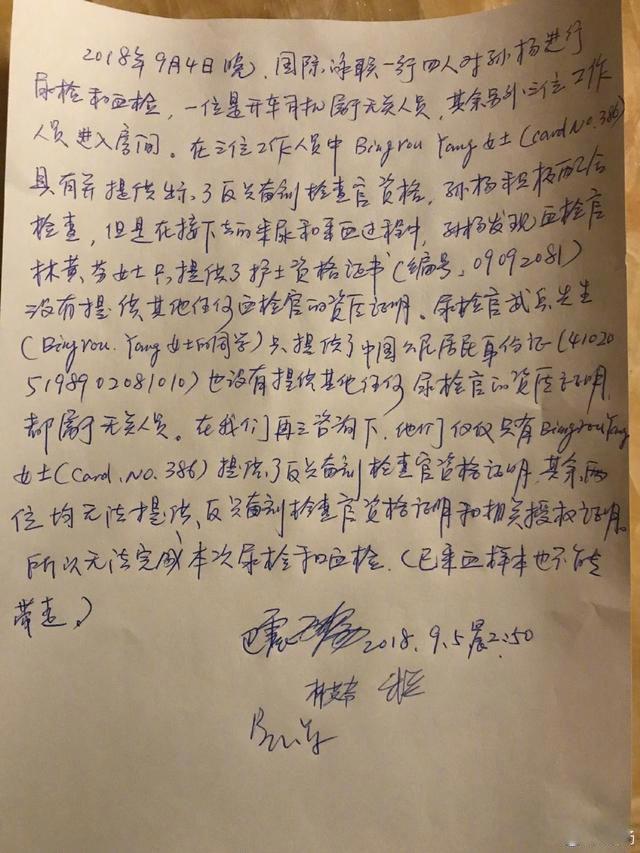 2018年9月4日晚，国际泳联一行四人对孙杨进行
尿检和血检，一位是开车司机属于无关人员，其余另外三位工作
人员进入房间。在三位工作人员中 Bingrou Yang女士(card No. 386)
具有并提供出示了反兴奋剂检查官资格，孙杨积极配合
检查，但是在接下去的采尿和采血过程中，孙杨发现血检官
林黄芬女士只提供了护士资格证书(编号：09092081)
没有提供其他任何血检官的资质证明。尿检官武兵先生
(Bingrou.Yang女士的同学)只提供了中国公民居民身份证(410205198902081010)也没有提供其他任何尿检官的资质证明，
都属于无关人员。在我们再三咨询下，他们仅仅只有Bingrou Yang
女士(Card.No. 386)提供了反兴奋剂检查官资格证明，其余两
位均无法提供反兴奋剂检查官资格证明和相关授权证明。
所以无法完成本次尿检和血检.(已采血样本也不能
带走。)
2018.9.5晨2:50